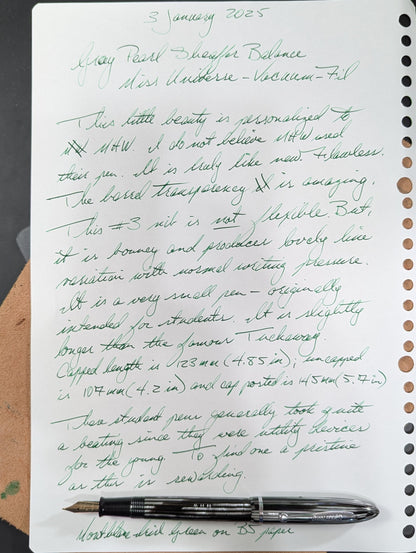 3 January 2025
Gray Pearl Sheaffer Balance
Miss Universe - Vacuum-Fil
This little beauty is personalized to
MHW. I do not believe MHW used
their pen. It is truly like new. Flawless.
The barrel transparency is amazing.
This #3 nib is not flexible. But,
it is bouncy and produces lovely line
variation with normal writing pressure.
It is a very small pen - originally
intended for students. It is slightly
longer than the famous Tuckaway.
Capped length is 123mm (4.85 in); uncapped
is 107mm (4.2 in) and cap posted is 145mm (5.7 in)
These student pens generally took quite
a beating since they were utility devices
for the young. To find one a pristine
as this is rewarding.
Montblanc Irish Green on B5 paper